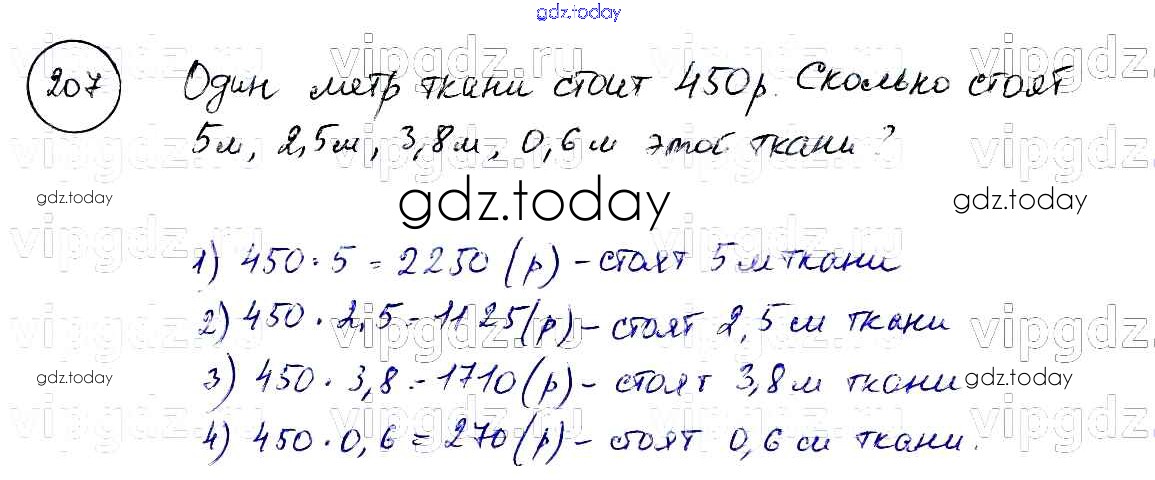 gdz.today
vipgdz.ru vipgdz.ru vipgdz.ru vipgdz
207
Один метр ткани стоит 450р. Сколько стоят
5м, 2,5м, 3,8м, 0,6м этой ткани?
gdz.today gdz.today gdz.today
1) 450·5 = 2250 (р) – стоят 5м ткани
2) 450·2,5 = 1125(р) – стоят 2,5м ткани
vipgdz.ru vipgdz.ru vipgdz.ru vipgdz
3) 450·3,8 = 1710(р) – стоят 3,8м ткани
gdz.today gdz.today
4) 450·0,6 = 270(р) – стоят 0,6м ткани.